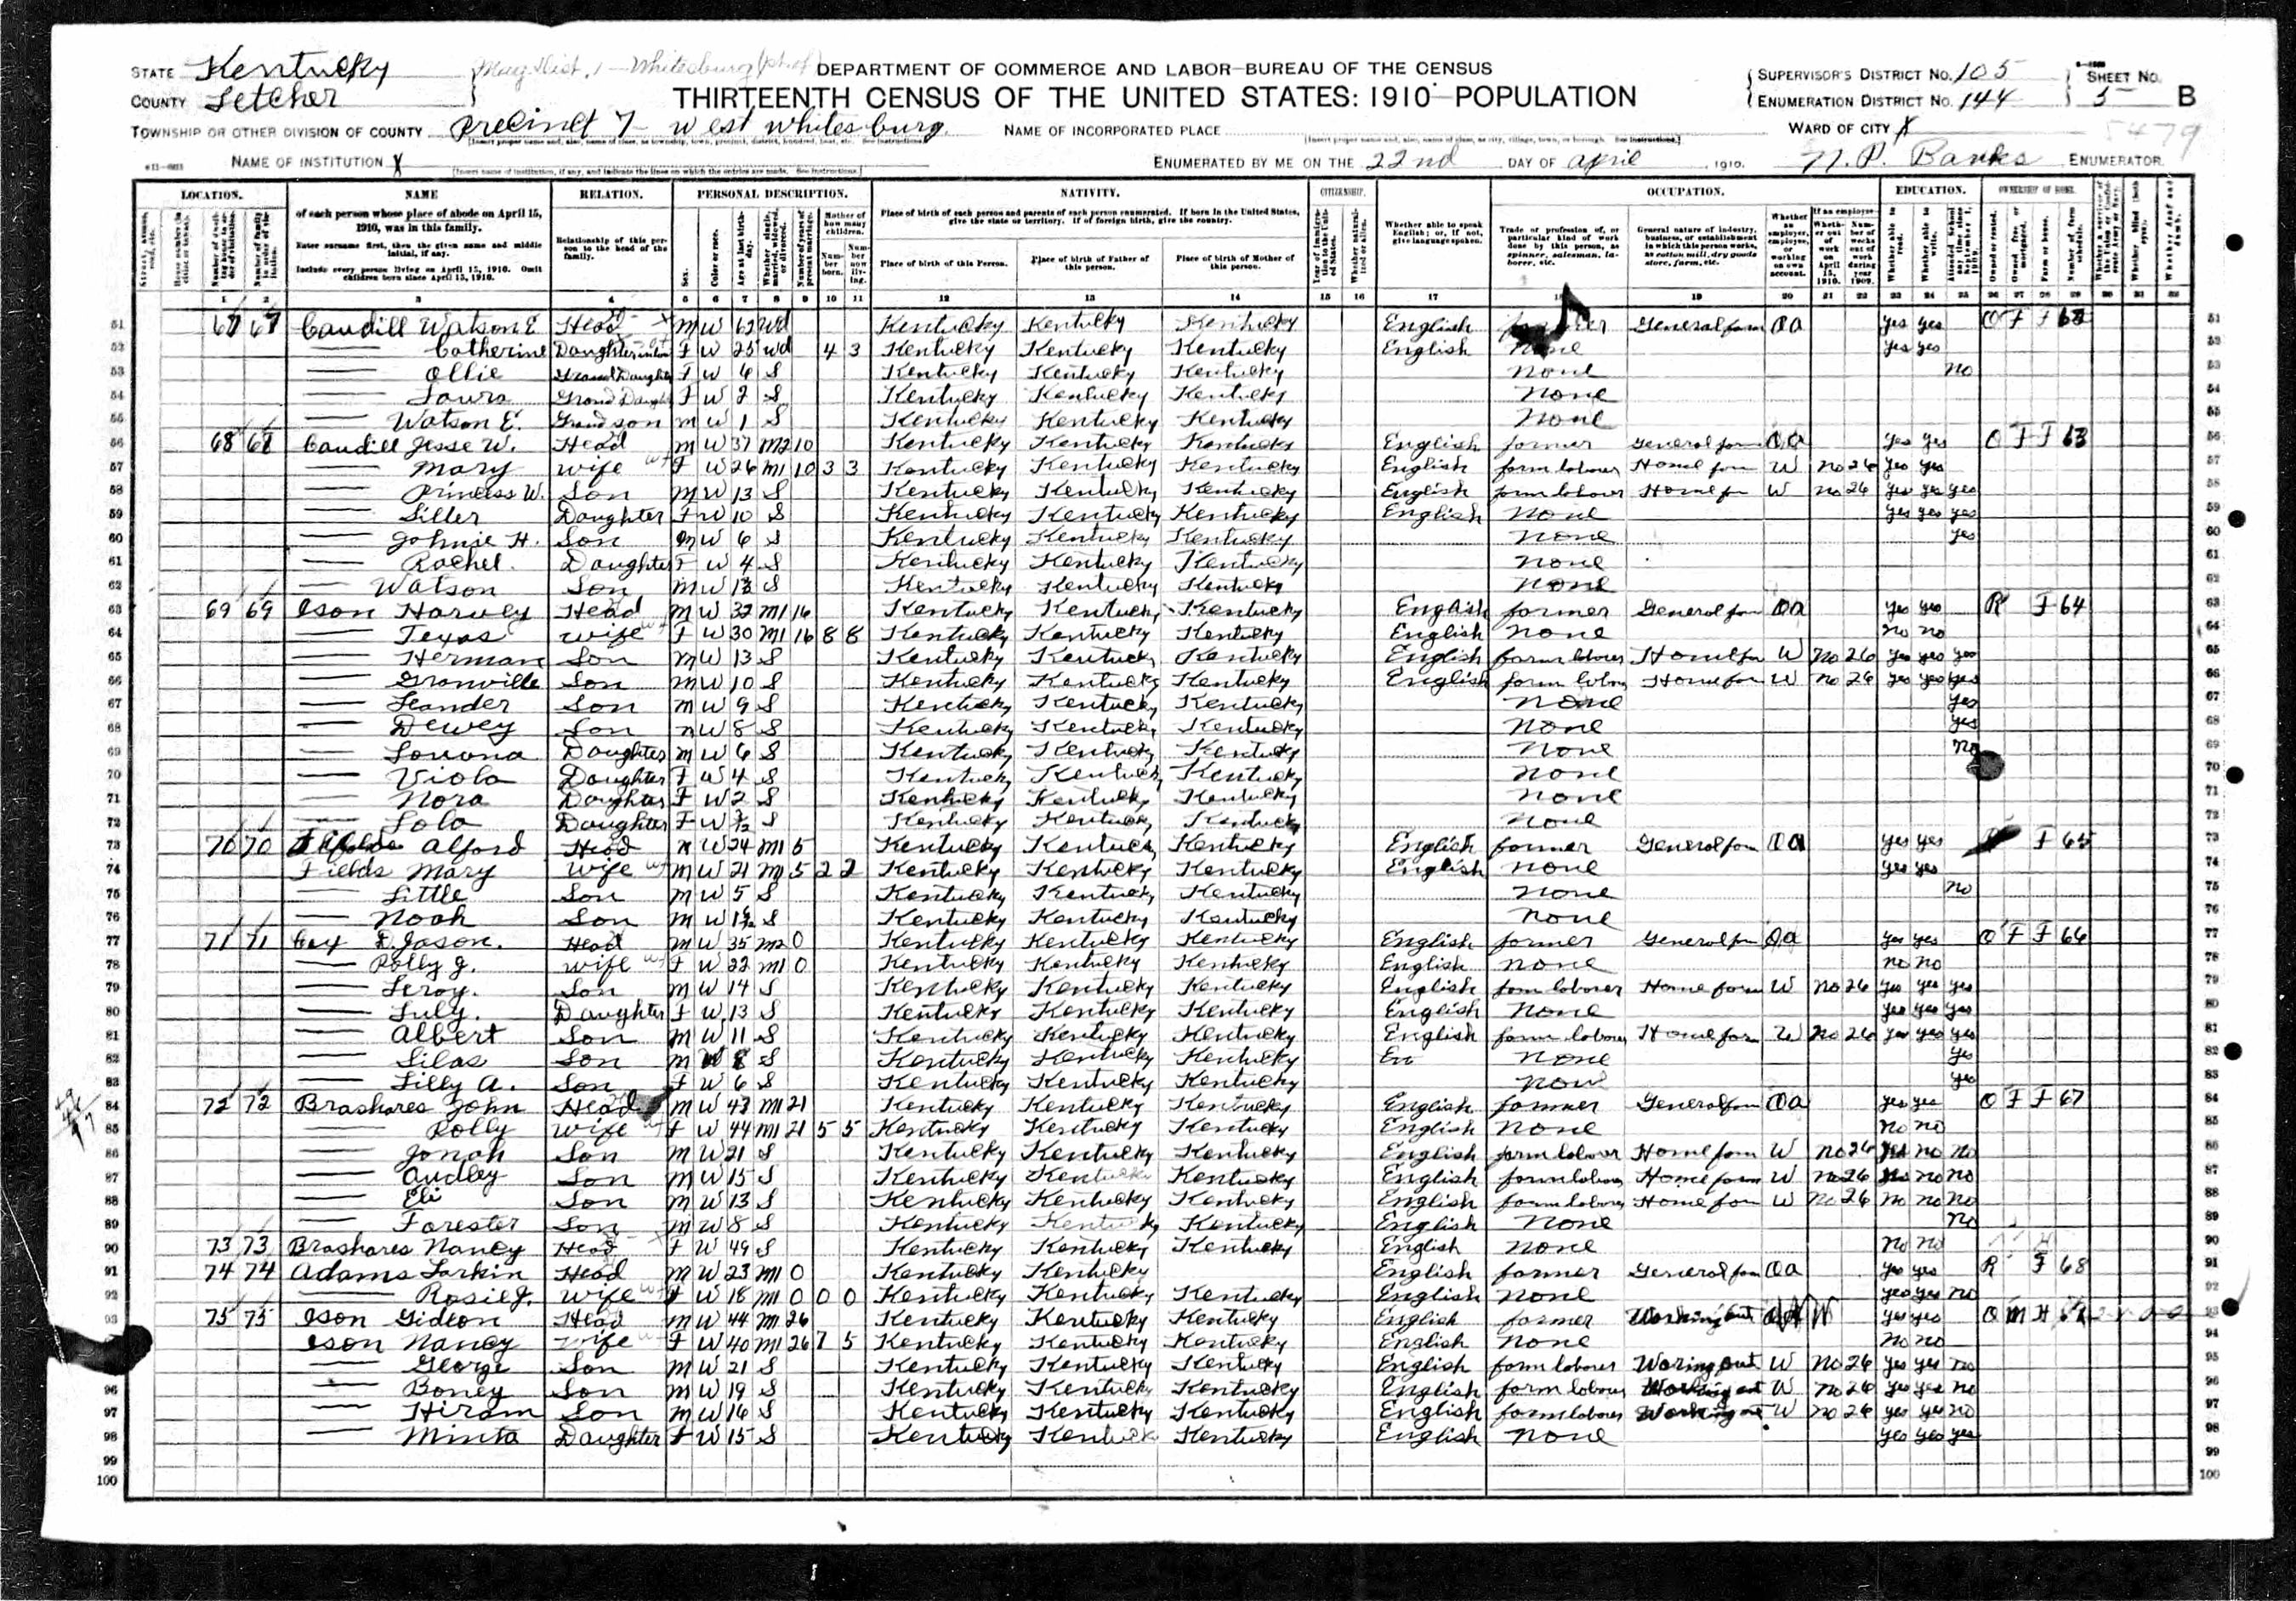 STATE Kentucky
Mag Dist. 1 Whitesburg (pt of)
DEPARTMENT OF COMMERCE AND LABOR—BUREAU OF THE CENSUS
SUPERVISOR'S DISTRICT No. 105
SHEET No.
COUNTY Letcher
THIRTEENTH CENSUS OF THE UNITED STATES: 1910—POPULATION
ENUMERATION DISTRICT No. 144
5 B
TOWNSHIP OR OTHER DIVISION OF COUNTY Precinct 7 west Whitesburg
NAME OF INCORPORATED PLACE
WARD OF CITY X
5479
NAME OF INSTITUTION X
ENUMERATED BY ME ON THE 22nd DAY OF april, 1910.
N. P. Banks, ENUMERATOR.
LOCATION. NAME RELATION. PERSONAL DESCRIPTION. NATIVITY. CITIZENSHIP. OCCUPATION. EDUCATION. OWNERSHIP OF HOME.
of each person whose place of abode on April 15, 1910, was in this family.
Enter surname first, then the given name and middle initial, if any.
Include every person living on April 15, 1910. Omit children born since April 15, 1910.
Relationship of this person to the head of the family.
Place of birth of each person and parents of each person enumerated. If born in the United States, give the state or territory. If of foreign birth, give the country.
Place of birth of this Person. Place of birth of Father of this person. Place of birth of Mother of this person.
Whether able to speak English; or, if not, give language spoken.
Trade or profession of, or particular kind of work done by this person, as spinner, salesman, laborer, etc.
General nature of industry, business, or establishment in which this person works, as cotton mill, dry goods store, farm, etc.
51 67 67 Caudill Watson E Head M W 62 Wd Kentucky Kentucky Kentucky English General farm OA yes yes O F F
52 —— Catherine Daughterinlaw F W 25 Wd 4 3 Kentucky Kentucky Kentucky English None yes yes
53 —— Ollie Grand Daughter F W 6 S Kentucky Kentucky Kentucky None no
54 —— Laura Grand Daught F W 2 S Kentucky Kentucky Kentucky None
55 —— Watson E. Grandson m W 1 S Kentucky Kentucky Kentucky None
56 68 68 Caudill Jesse W. Head m W 37 M2 10 Kentucky Kentucky Kentucky English farmer General farm OA yes yes O F F 63
57 —— Mary wife F W 26 M1 10 3 3 Kentucky Kentucky Kentucky English farm laborer Home farm W no 26 yes yes
58 —— Princess W. Son M W 13 S Kentucky Kentucky Kentucky English farm laborer Home far W no 26 yes yes yes
59 —— Siller Daughter F W 10 S Kentucky Kentucky Kentucky English None yes yes yes
60 —— Johnie H. Son M W 6 S Kentucky Kentucky Kentucky None yes
61 —— Rachel. Daughter F W 4 S Kentucky Kentucky Kentucky None
62 —— Watson Son M W S Kentucky Kentucky Kentucky None
63 69 69 Ison Harvey Head M W 32 M1 16 Kentucky Kentucky Kentucky English farmer General far OA yes yes R F 64
64 —— Texas wife F W 30 M1 16 8 8 Kentucky Kentucky Kentucky English None no no
65 —— Herman Son M W 13 S Kentucky Kentucky Kentucky English farm laborer Home far W No 26 yes yes yes
66 —— Granville Son M W 10 S Kentucky Kentucky Kentucky English farm labor Home far W no 26 yes yes yes
67 —— Leander Son M W 9 S Kentucky Kentucky Kentucky None yes
68 —— Dewey Son M W 8 S Kentucky Kentucky Kentucky None yes
69 —— Daughter M W 6 S Kentucky Kentucky Kentucky None no
70 —— Viola Daughter F W 4 S Kentucky Kentucky Kentucky None
71 —— Nora Daughter F W 2 S Kentucky Kentucky Kentucky None
72 —— Lola Daughter F W S Kentucky Kentucky Kentucky None
73 70 70 Alford Head M W 24 M1 5 Kentucky Kentucky Kentucky English farmer General farm OA yes yes F 65
74 Fields Mary wife M W 21 M1 5 2 2 Kentucky Kentucky Kentucky English None yes yes
75 —— Little Son M W 5 S Kentucky Kentucky Kentucky None no
76 —— Noah Son M W S Kentucky Kentucky Kentucky None
77 71 71 Cay D. Jason. Head M W 35 M2 0 Kentucky Kentucky Kentucky English farmer General far OA yes yes O F F 66
78 —— Polly J. wife F W 22 M1 0 Kentucky Kentucky Kentucky English None no no
79 —— Leroy. Son M W 14 S Kentucky Kentucky Kentucky English farm laborer Home farm W no 26 yes yes yes
80 —— July. Daughter F W 13 S Kentucky Kentucky Kentucky English None yes yes yes
81 —— Albert Son M W 11 S Kentucky Kentucky Kentucky English farm laborer Home farm W No 26 yes yes yes
82 —— Silas Son M W 8 S Kentucky Kentucky Kentucky En None yes
83 —— Lilly A. Son F W 6 S Kentucky Kentucky Kentucky None yes
84 72 72 Brashares John Head M W 43 M1 21 Kentucky Kentucky Kentucky English farmer General farm OA yes yes O F F 67
85 —— Polly wife F W 44 M1 21 5 5 Kentucky Kentucky Kentucky English None no no
86 —— Jonah Son M W 21 S Kentucky Kentucky Kentucky English farm laborer Home farm W no 26 yes no no
87 —— Audley Son M W 15 S Kentucky Kentucky Kentucky English farm laborer Home farm W no 26 no no no
88 —— Eli Son M W 13 S Kentucky Kentucky Kentucky English farm laborer Home farm W no 26 no no no
89 —— Forester Son M W 8 S Kentucky Kentucky Kentucky English None no
90 73 73 Brashares Nancy Head F W 49 S Kentucky Kentucky Kentucky English None no no
91 74 74 Adams Larkin Head M W 23 M1 0 Kentucky Kentucky English farmer General farm OA yes yes R F 68
92 —— Rosie J. wife F W 18 M1 0 0 0 Kentucky Kentucky Kentucky English None yes yes no
93 75 75 Ison Gideon Head M W 44 M1 26 Kentucky Kentucky Kentucky English farmer Working out W yes yes O M H
94 Ison Nancy Wife F W 40 M1 26 7 5 Kentucky Kentucky Kentucky English None no no
95 —— George Son M W 21 S Kentucky Kentucky Kentucky English farm laborer Woring out W No 26 yes yes no
96 —— Boney Son M W 19 S Kentucky Kentucky Kentucky English farm laborer Working out W no 26 yes yes no
97 —— Hiram Son M W 16 S Kentucky Kentucky Kentucky English farm laborer Working out W no 26 yes yes no
98 —— Minta Daughter F W 15 S Kentucky Kentucky Kentucky English None yes yes yes
99
100